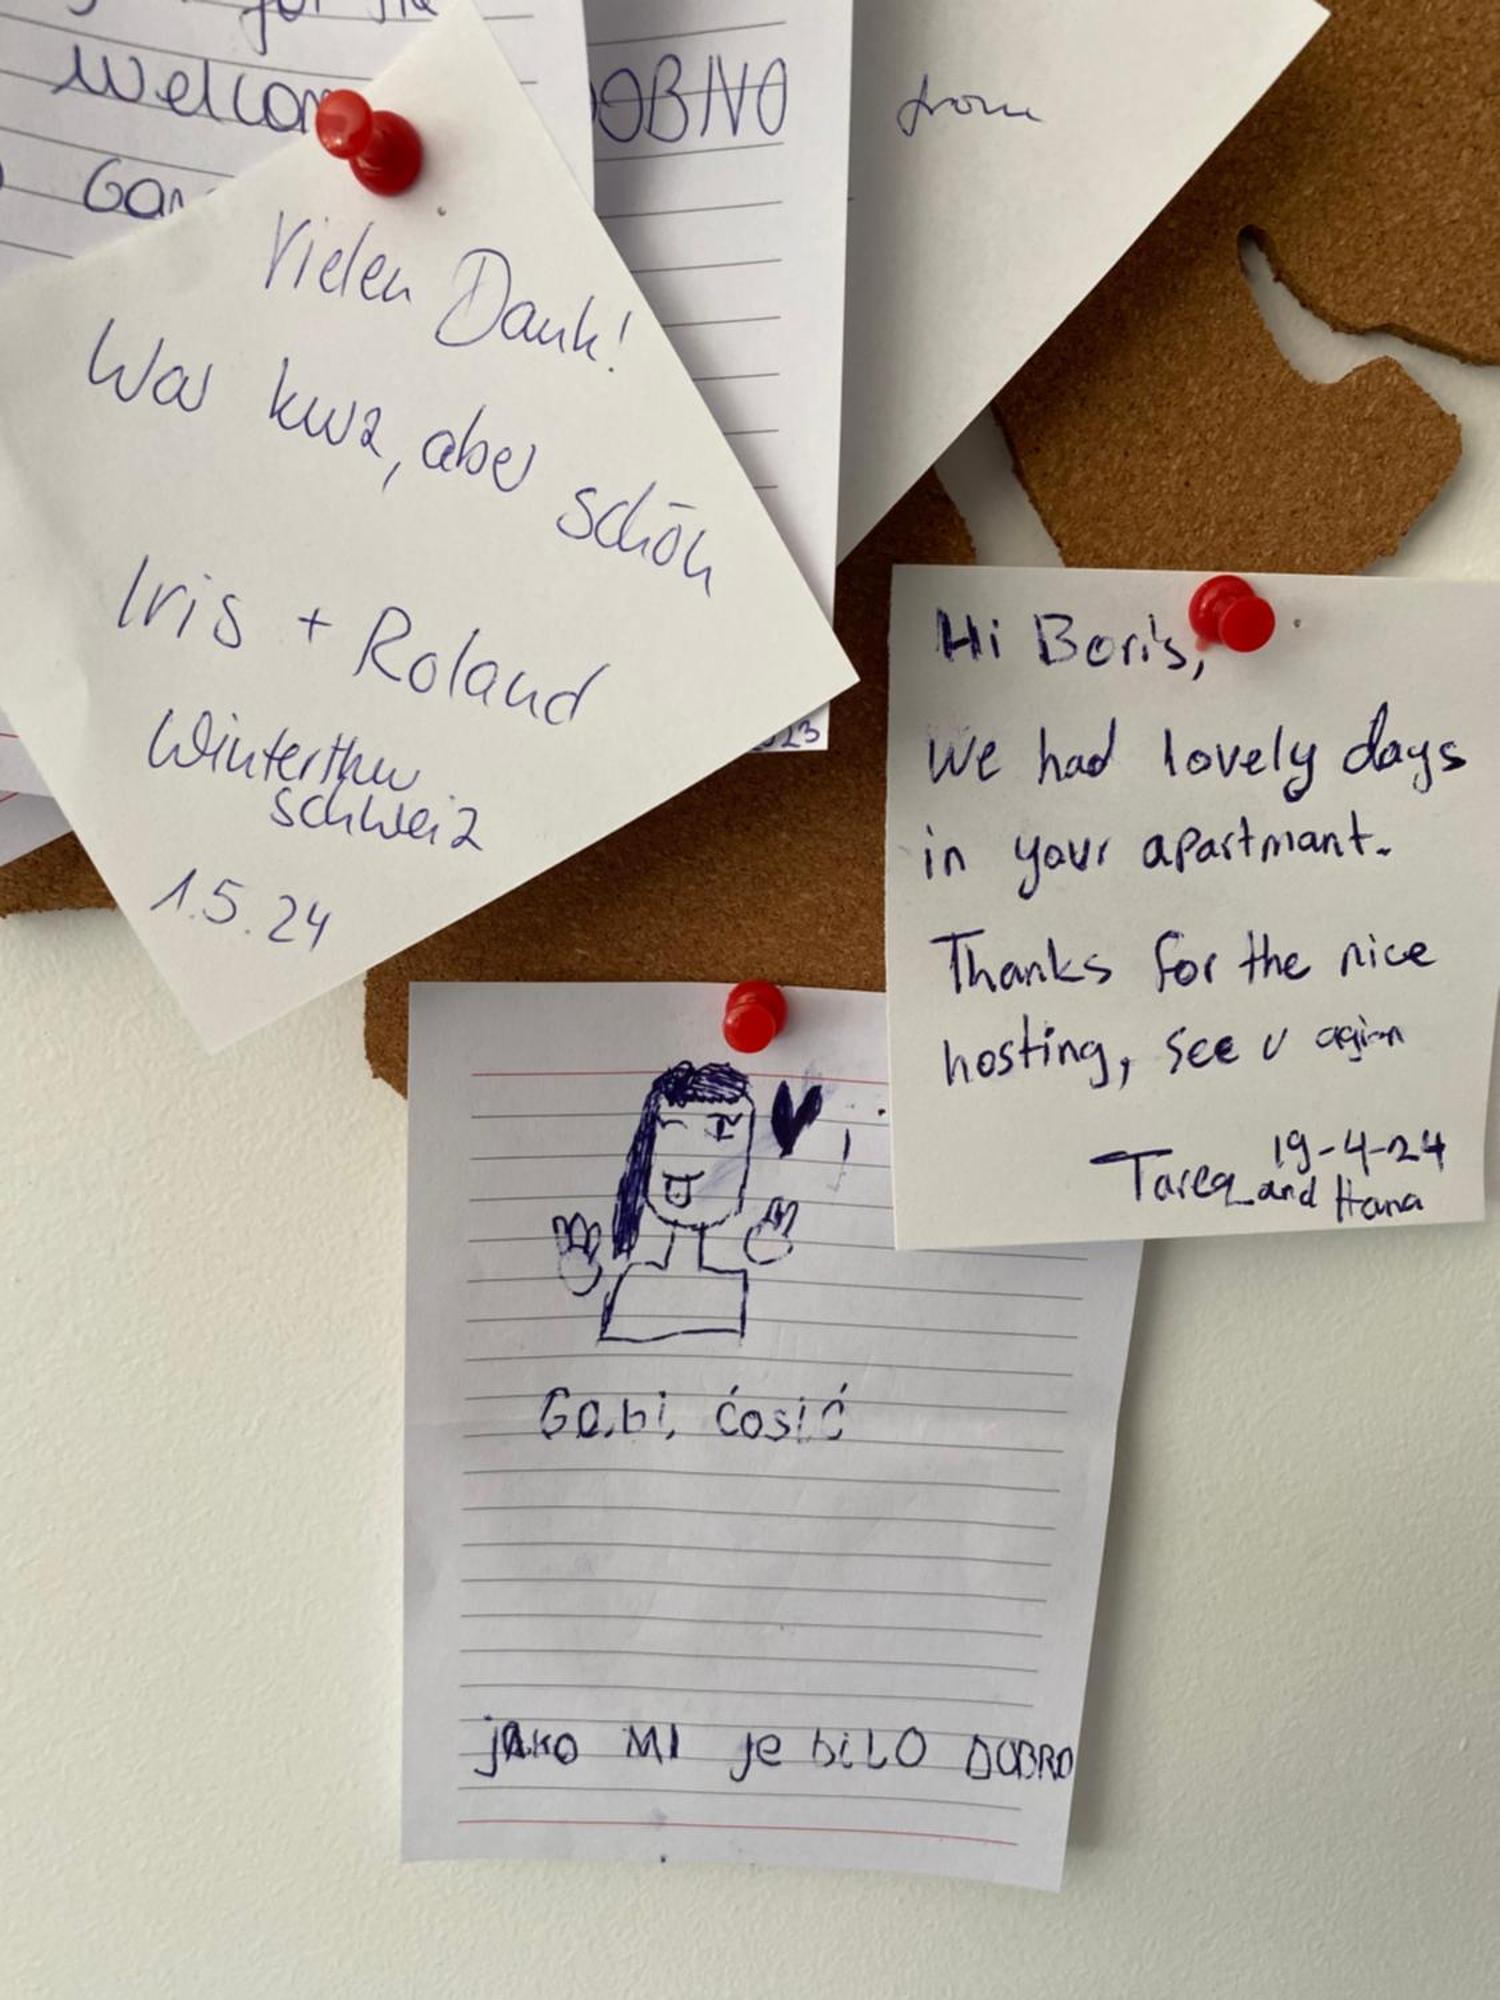 for the
Welcom
Gar
OBNO
from
Vielen Dank!
War kurz, aber schön
Iris + Roland
Winterthur
Schweiz
1.5.24
23
Hi Boris,
We had lovely days
in your apartmant.
Thanks for the nice
hosting, see u agian
19-4-24
Tareq and Hana
Gabi, ćosić
jAKO MI je biLO DOBRO